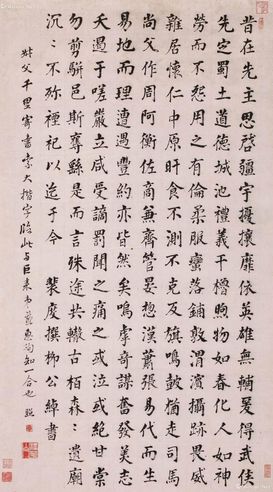 昔在先主思啓疆宇擾攘靡依英雄無輔爰得武侯
先定蜀土道德城池禮義干櫓煦物如春化人如神
勞而不怨用之有倫柔服蠻落鋪敦渭濱攝跡畏威
雜居懷仁中原旰食不測不克反旗鳴鼓猶走司馬
尚父作周阿衡佐商兼齊管晏揔漢蕭張易代而生
易地而理遭遇豐約亦皆然矣嗚虖奇謀奮發美志
夭遏于嗟嚴立咸受謫罰聞之痛之或泣或絕甘棠
勿翦駢邑斯奪繇是而言殊途共轍古柏森:遺廟
沉:不殄禋祀以迄于今 裴度撰柳公綽書
父千里寄書索大楷字臨此与巨來知一合也